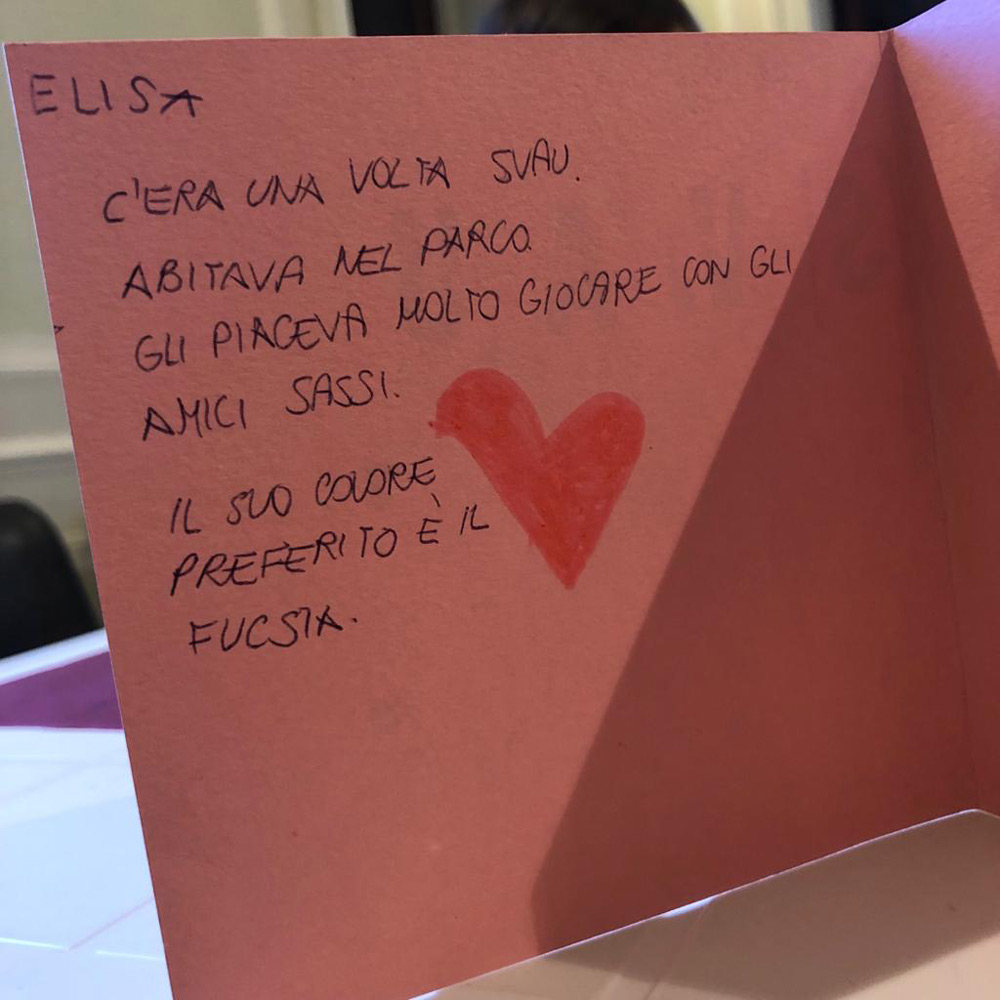 ELISA
C'ERA UNA VOLTA SVAU.
ABITAVA NEL PARCO.
GLI PIACEVA MOLTO GIOCARE CON GLI
AMICI SASSI.
IL SUO COLORE
PREFERITO È IL
FUCSIA.